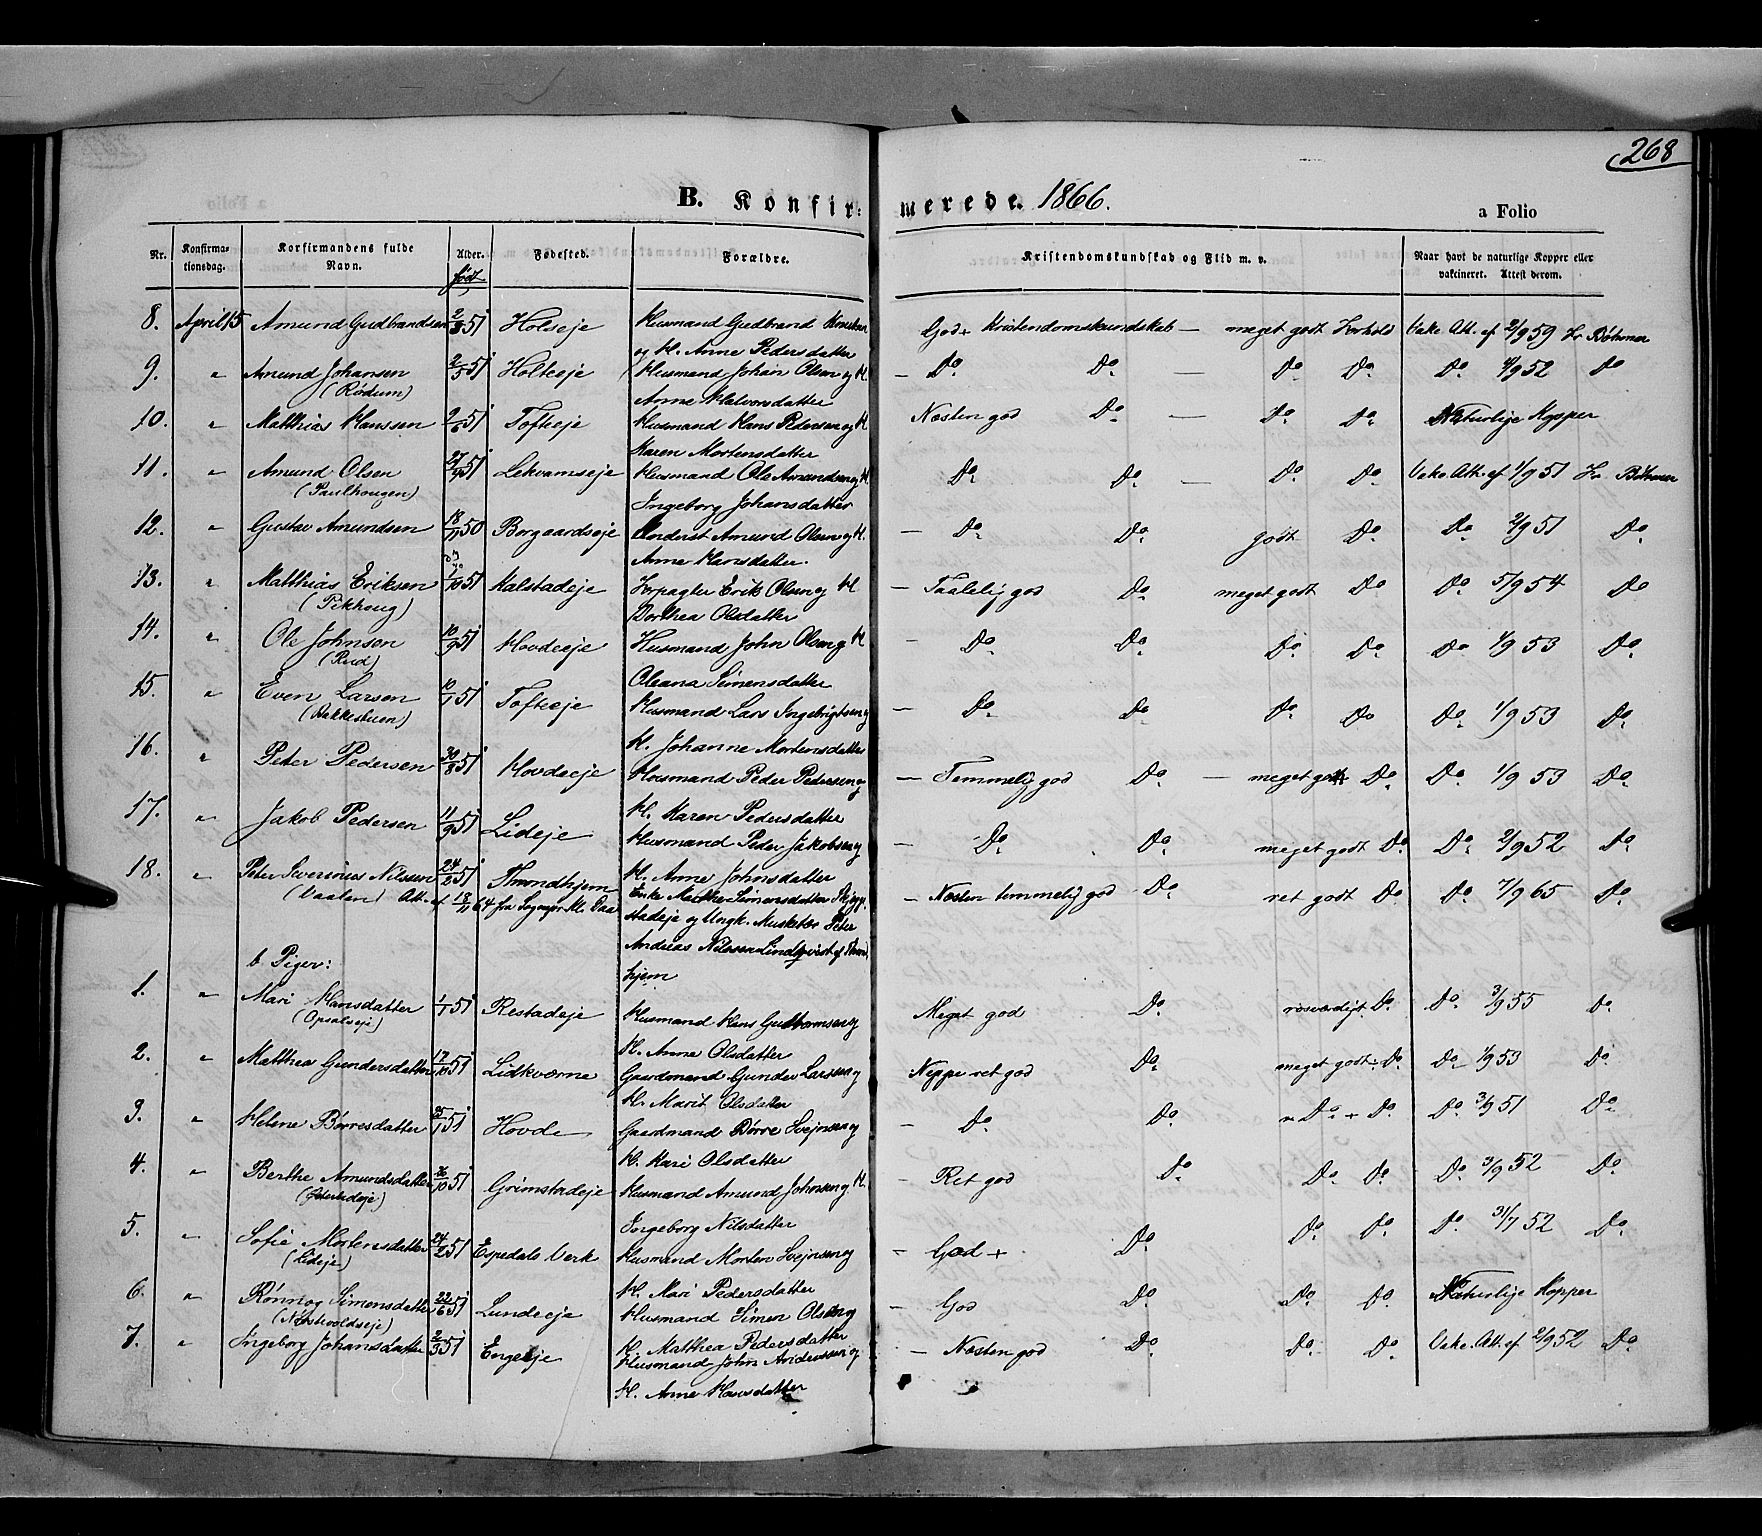 268
B. Konfirmerede. 1866.
a Folio
Nr. Konfirmationsdag. Korfirmandens fulde Navn. Alder. født Fødested. Forældre. Kristendomskundskab og Flid m. v. Naar havt de naturlige Kopper eller vaktineret. Attest derom.
8. April 15 Amund Gudbrandsen 2/8 51 Holseje Husmand Gudbrand God + Kristendomskundskab — meget godt Forhold Vakc. Att. af 2/9 59 Hr Bøhmer
og H. Anne Pedersdatter
9. " Amund Johansen 2/5 51 Holteeje Husmand Johan Olsen og H. — Do Do — Do Do Do 4/9 52 Do
(Rødum) Anne Halvorsdatter
10. " Matthias Hanssen 2/6 51 Tofteeje Husmand Hans Pedersen og H Næsten god Do — Do Do Naturlige Kopper
Karen Mortensdatter
11. " Amund Olsen 27/9 51 Lekvamseje Husmand Ole Amundsen og H Do Do — Do Do Vakc. Att. af 1/9 51 Hr Bøhmer
(Paulhougen) Ingeborg Johansdatter
12. " Gustav Amundsen 18/11 50 Borgaardseje Underst Amund Olsen og H. — Do Do godt Do Do 2/9 51 Do
Anne Hansdatter.
13. " Matthias Eriksen 1/10 51 Kalstadeje Forpagter Erik Olsen og H — Taalelig god Do meget godt Do Do 5/9 54 Do
(Pikhoug) Dorthea Olsdatter
14. " Ole Johnsen 10/9 51 Hovdeeje Husmand John Olsen og H — Do Do Do Do Do 1/9 53 Do
(Rud) Oleana Simensdatter
15. " Even Larsen 10/1 51 Tofteeje Husmand Lars Ingebrigtsen og — Do Do Do Do Do 1/9 53 Do
(Bakkestuen) H. Johanne Mortensdatter
16. " Peter Pedersen 30/8 51 Hovdeeje Husmand Peder Pedersen og — Temmelig god Do — meget godt Do Do 1/9 53 Do
H. Karen Pedersdatter
17. " Jakob Pedersen 11/9 51 Lideje Husmand Peder Jakobsen og — Do Do meget godt Do Do 2/9 52 Do
H. Anne Johnsdatter
18. " Peter Severinus Nilssen 24/2 51 Throndhjem Enke Marthe Simensdatter — Næsten temmelig god Do ret godt Do Do 7/9 65 Do
(Vaalen) Att. af 18/11 64 fra Sognepr. stadeje og Ungk. Musketér Peter
Andreas Nilssen Lindqvist af Thrond
hjem
b. Piger:
1. " Mari Hansdatter 1/1 51 Restadeje Husmand Hans Guttormsen og Meget god Do rosværdigt Do Do 3/9 55 Do
(Opsalseje) H. Anne Olsdatter
2. " Matthea Gundersdatter 17/10 51 Lidkværne Gaardmand Gunder Larssen og Neppe ret god Do meget godt Do Do 1/9 53 Do
H. Marit Olsdatter
3. " Helene Børresdatter 25/1 51 Hovde Gaardmand Børre Svejnsen og — Do Do " Do + Do Do 3/9 51 Do
H. Kari Olsdatter
4. " Berthe Amundsdatter 16/10 51 Grimstadeje Husmand Amund Johnsen og H. — Ret god Do Do Do Do 3/9 52 Do
Ingeborg Nilsdatter
5. " Sofie Mortensdatter 24/2 51 Espedals Verk Husmand Morten Svejnsen og — God + Do Do Do Do 31/7 52 Do
(Lideje) H. Mari Pedersdatter
6. " Rønnog Simensdatter 22/6 51 Lundeeje Husmand Simen Olsen og — God Do Do Do Naturlige Kopper
(Nørstvoldseje) H. Matthea Pedersdatter
7. " Ingeborg Johansdatter 2/3 51 Engeeje Husmand John Anderssen og — Næsten god Do Do Do Vakc. Att. af 2/9 52 Do
H. Anne Hansdatter